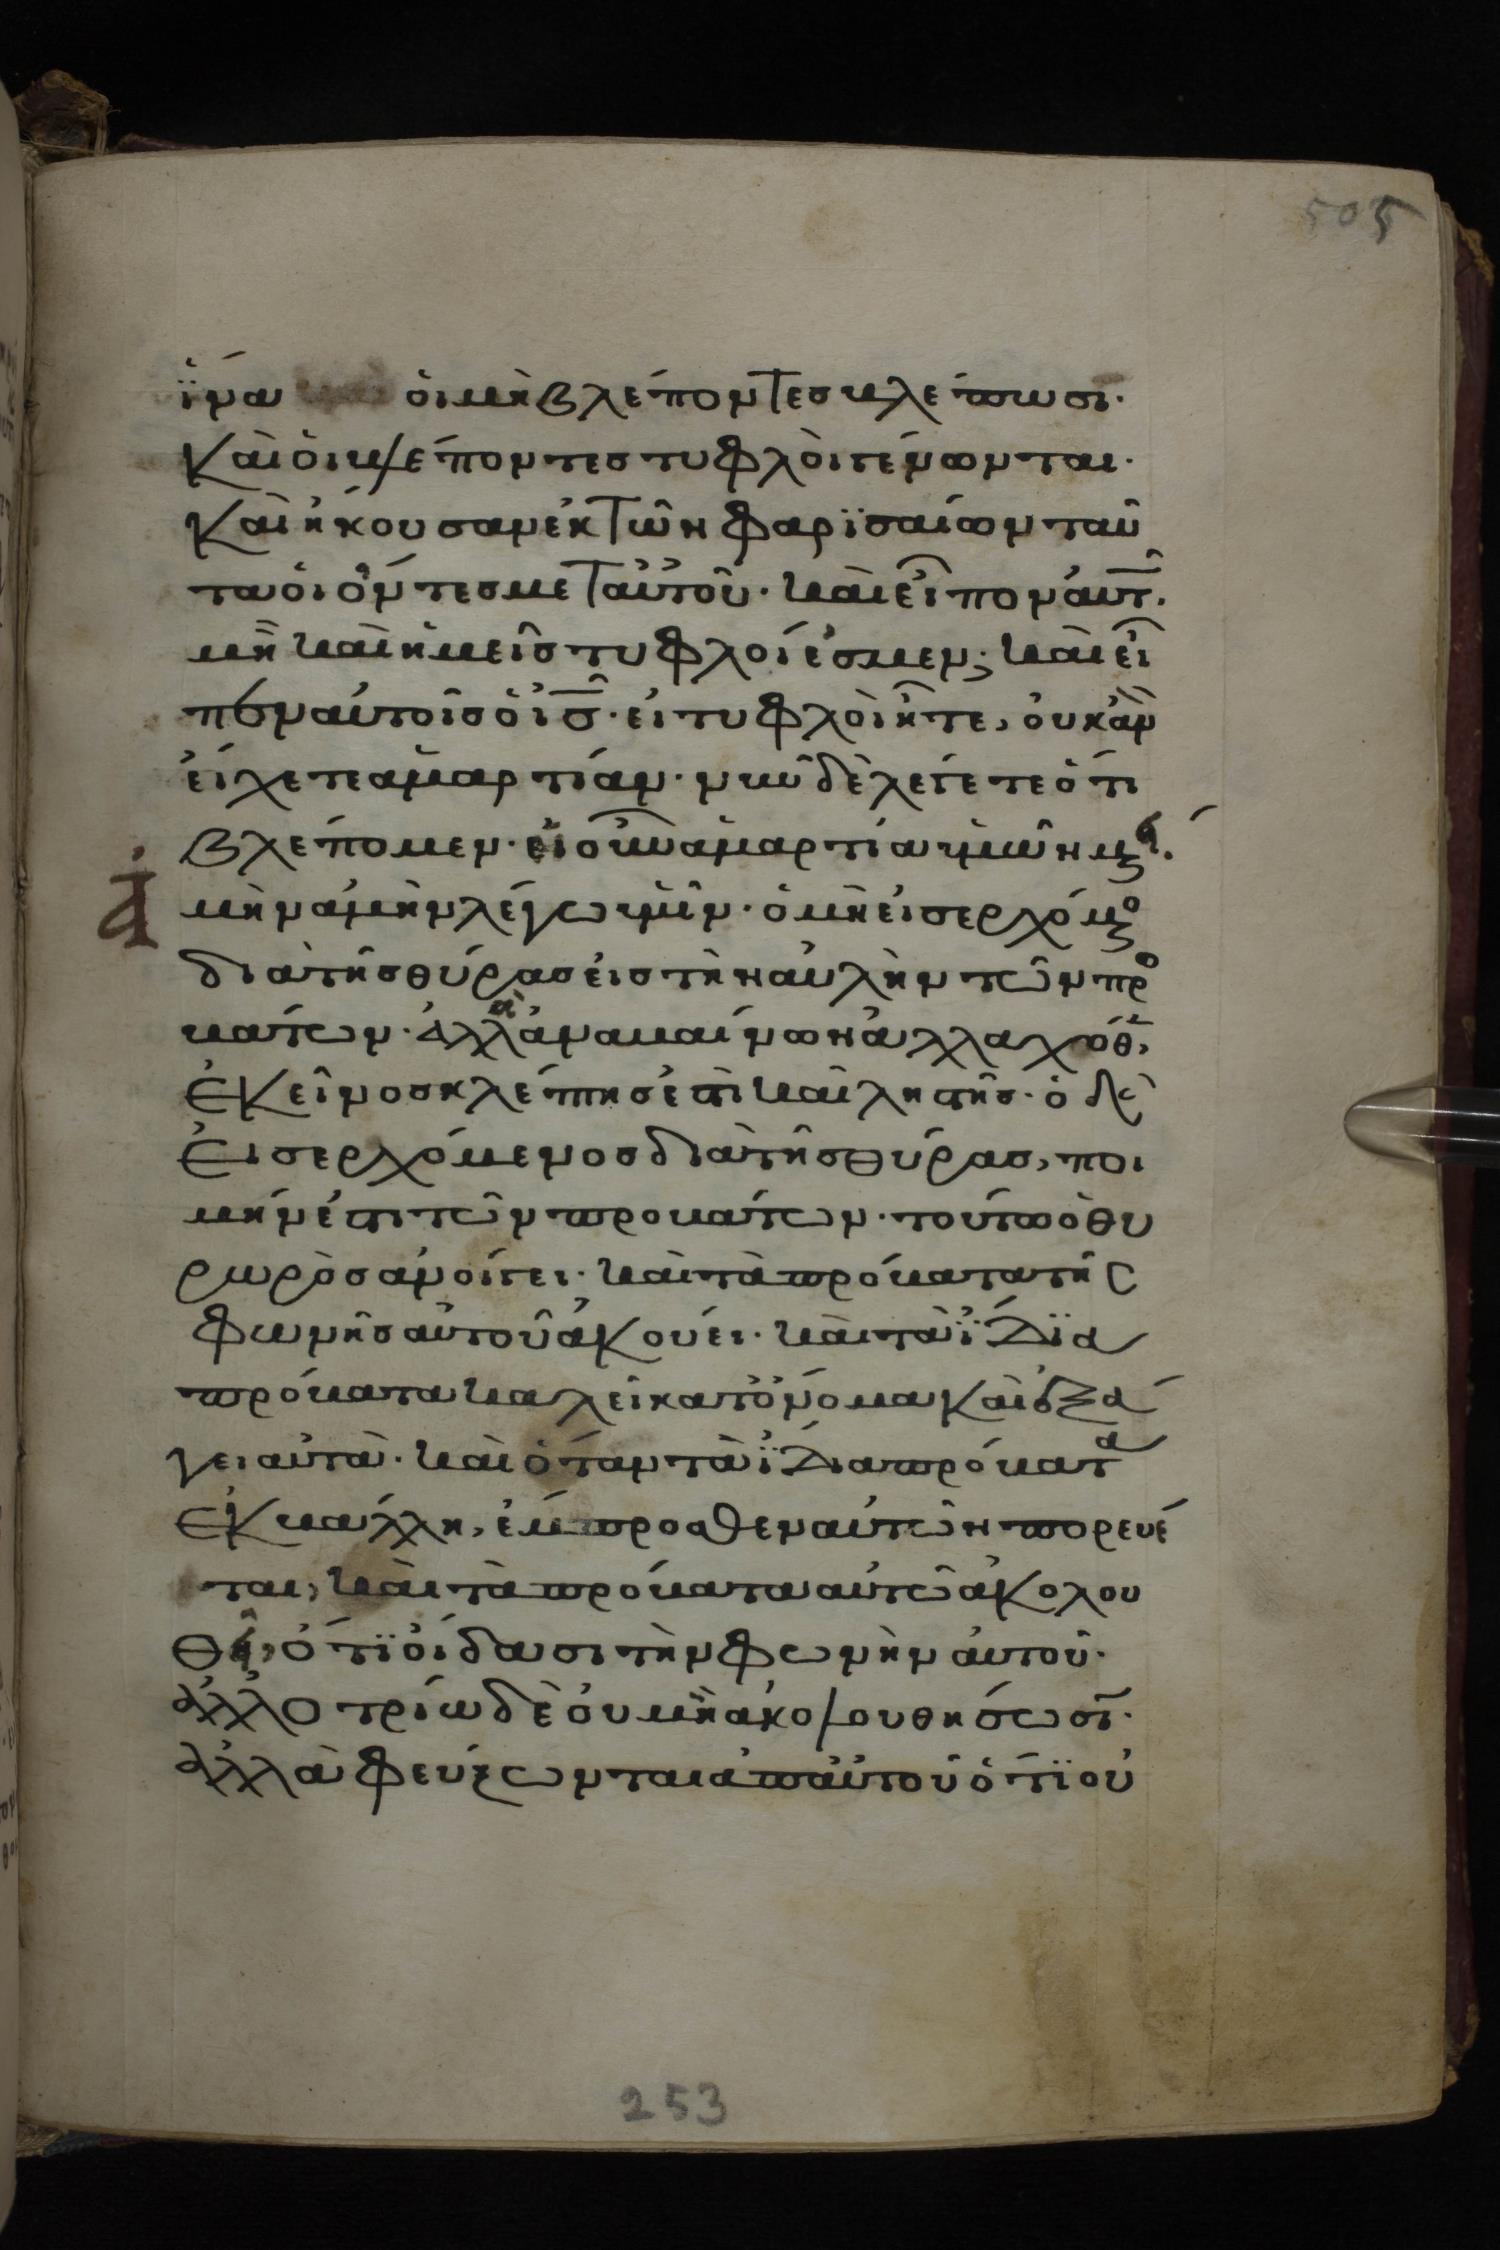 505
ἵνα οἱ μὴ βλέποντες βλέπωσι·
καὶ οἱ βλέποντες τυφλοὶ γένωνται·
καὶ ἤκουσαν ἐκ τῶν φαρϊσαίων ταῦ
τα οἱ ὄντες μετ αὐτοῦ· καὶ εἶπον αὐτ̑.
μὴ καὶ ἡμεῖς τυφλοί ἐσμεν; καὶ εἶ
πεν αὐτοῖς ὁ ἰς̅· εἰ τυφλοὶ ἦτε, οὐκ ἂν
εἴχετε ἁμαρτίαν· νῦν δὲ λέγετε ὅτι
βλέπομεν· εἰ οὖν ἁμαρτία ὑμῶν μέ.
Ἀ μὴν ἀμὴν λέγω ὑμῖν· ὁ μὴ εἰσερχόμο
διὰ τῆς θύρας εἰς τὴν αὐλὴν τῶν προ
βάτων· ἀλλὰ ἀναβαίνων ἀλλαχόθε,
ἐκεῖνος κλέπτης ἐστὶ καὶ ληστής· ὁ δὲ
εἰσερχόμενος διὰ τῆς θύρας, ποι
μήν ἐστι τῶν προβάτων· τούτω ὁ θυ
ρωρὸς ἀνοίγει· καὶ τὰ πρόβατα τῆς
φωνῆς αὐτοῦ ἀκούει· καὶ τὰ ἴδϊα
πρόβατα καλεῖ κατ ὄνομα καὶ ἐξά
γει αὐτὰ· καὶ ὅταν τὰ ἴδια πρόβατα
ἐκβάλλη, ἔμπροσθεν αὐτῶν πορεύε
ται, καὶ τὰ πρόβατα αὐτῶ ἀκολου
θῆ, ὅτϊ οἴδασι τὴν φωνὴν αὐτοῦ·
ἀλλοτρίω δὲ οὐ μὴ ἀκολουθήσωσϊ·
ἀλλὰ φεύξωνται ἀπ αὐτοῦ ὅτϊ οὐ
253